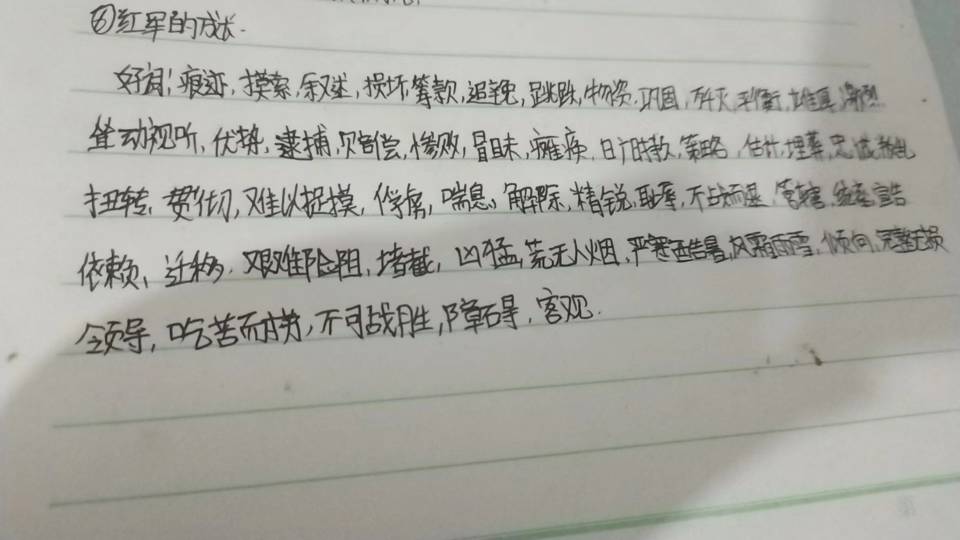 ⑥红军的成长.
好消!痕迹,摸索,叙述,损坏,筹款,追挽,跳跌,物资,巩固,歼灭,平衡,雄厚,
耸动视听,优势,逮捕,赔偿,惨败,冒昧,瘫痪,日广时款,策略,估计,埋葬,忠诚,
扭转,贯彻,难以捉摸,俘虏,喘息,解除,精锐,耻辱,不战而退,管辖,
依赖,迁移,艰难险阻,堵截,凶猛,荒无人烟,严寒酷暑,风霜雨雪,倾向,完整无损
领导,吃苦而劳,不可战胜,障碍,客观.